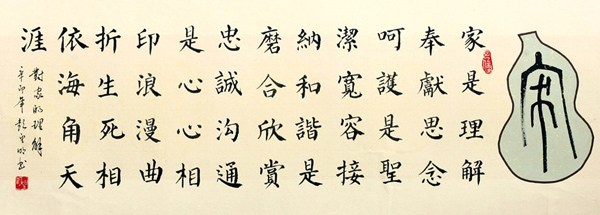 家
家是理解
奉獻思念
呵護是聖
潔寬容接
納和諧是
磨合欣賞
忠誠沟通
是心心相
印浪漫曲
折生死相
依海角天
涯
對家的理解
辛卯年